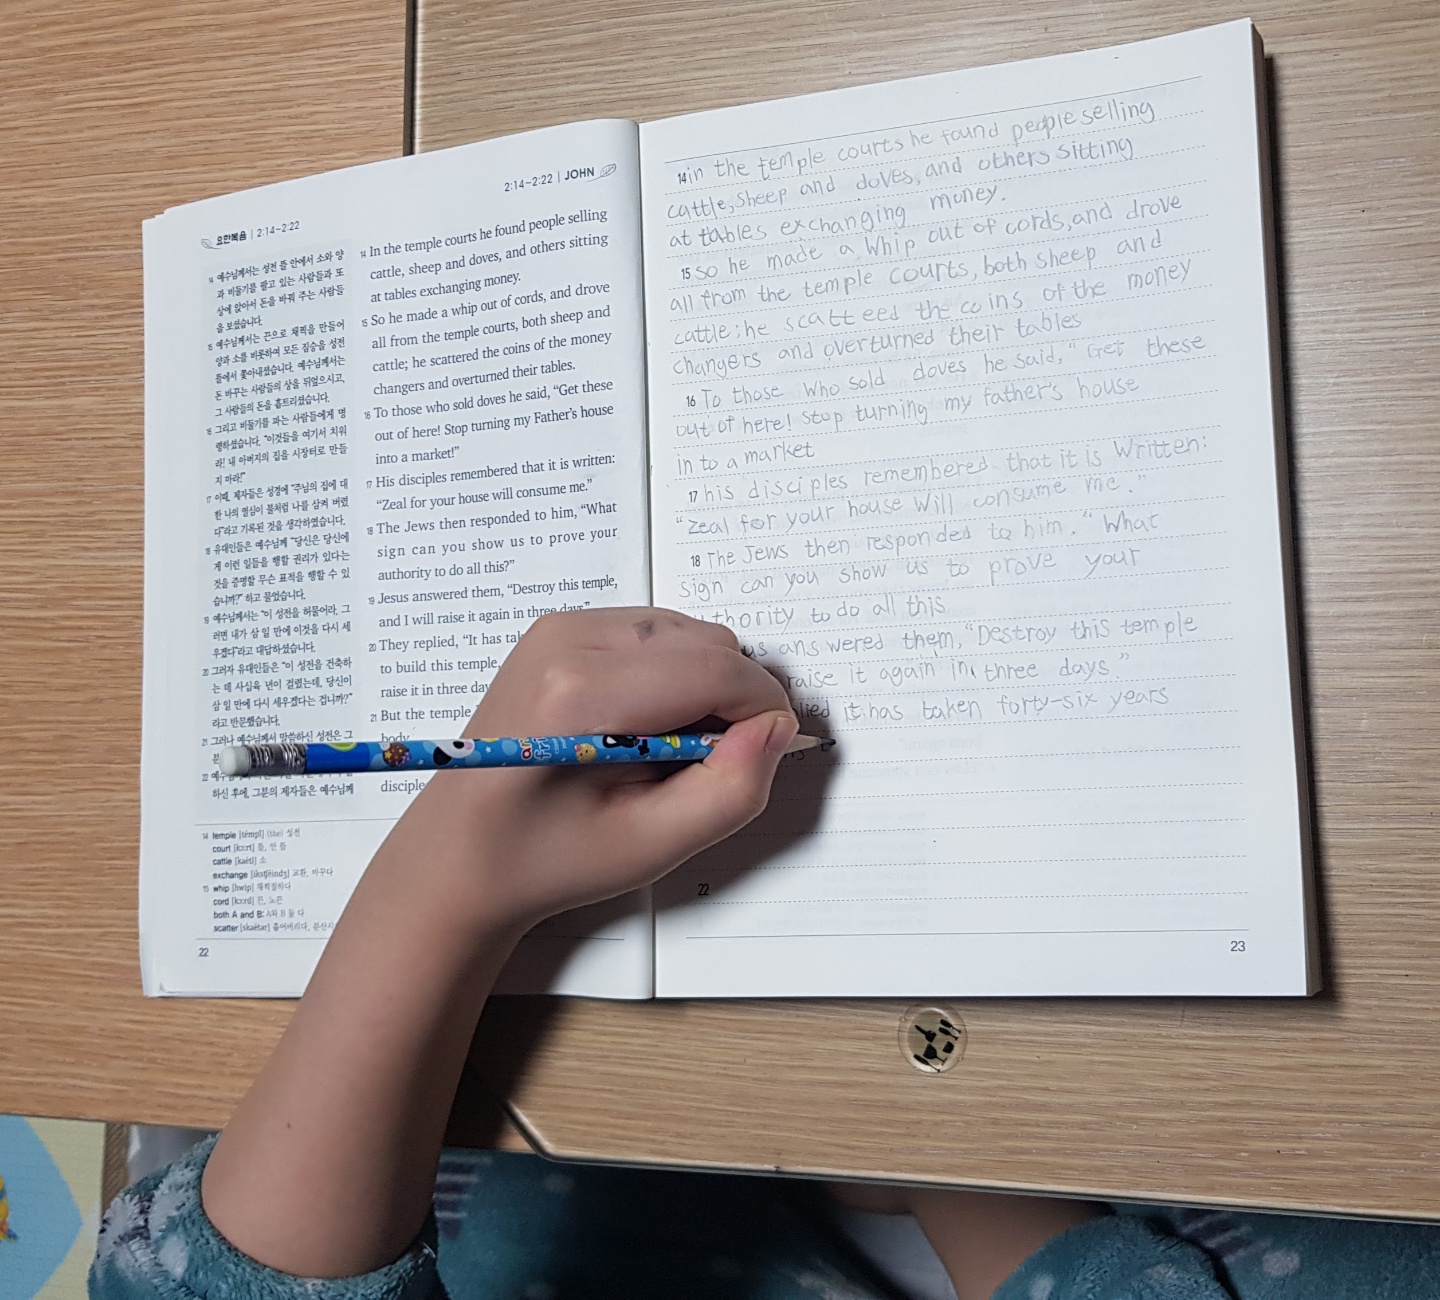 요한복음 | 2:14-2:22
14 예수님께서는 성전 뜰 안에서 소와 양
과 비둘기를 팔고 있는 사람들과 또
상에 앉아서 돈을 바꿔 주는 사람들
을 보셨습니다.
15 예수님께서는 끈으로 채찍을 만들어
양과 소를 비롯하여 모든 짐승을 성전
뜰에서 쫓아내셨습니다. 예수님께서는
돈 바꾸는 사람들의 상을 뒤엎으시고,
그 사람들의 돈을 흩트리셨습니다.
16 그리고 비둘기를 파는 사람들에게 명
령하셨습니다. "이것들을 여기서 치워
라! 내 아버지의 집을 시장터로 만들
지 마라!"
17 이때, 제자들은 성경에 "주님의 집에 대
한 나의 열심이 불처럼 나를 삼켜 버렸
다"라고 기록된 것을 생각하였습니다.
18 유대인들은 예수님께 "당신은 당신에
게 이런 일들을 행할 권리가 있다는
것을 증명할 무슨 표적을 행할 수 있
습니까?" 하고 물었습니다.
19 예수님께서는 "이 성전을 허물어라. 그
러면 내가 삼 일 만에 이것을 다시 세
우겠다"라고 대답하셨습니다.
20 그러자 유대인들은 "이 성전을 건축하
는 데 사십육 년이 걸렸는데, 당신이
삼 일 만에 다시 세우겠다는 겁니까?"
라고 반문했습니다.
21 그러나 예수님께서 말씀하신 성전은 그
22
하신 후에, 그분의 제자들은 예수님께
2:14-2:22 | JOHN
14 In the temple courts he found people selling
cattle, sheep and doves, and others sitting
at tables exchanging money.
15 So he made a whip out of cords, and drove
all from the temple courts, both sheep and
cattle; he scattered the coins of the money
changers and overturned their tables.
16 To those who sold doves he said, "Get these
out of here! Stop turning my Father's house
into a market!"
17 His disciples remembered that it is written:
"Zeal for your house will consume me."
18 The Jews then responded to him, "What
sign can you show us to prove your
authority to do all this?"
19 Jesus answered them, "Destroy this temple,
and I will raise it again in three days."
20 They replied, "It has
to build this temple,
raise it in three
21 But the temple
body.
disciple
14 temple [témpl] (the) 성전
court [kɔːrt] 뜰, 안 뜰
cattle [kaétl] 소
exchange [ikstʃéindʒ] 교환, 바꾸다
15 whip [hwip] 채찍질하다
cord [kɔːrd] 끈, 노끈
both A and B: A와 B 둘 다
scatter [skaétər] 흩어버리다,
22
14 in the temple courts he found people selling
cattle, sheep and doves, and others sitting
at tables exchanging money.
15 so he made a whip out of cords, and drove
all from the temple courts, both sheep and
cattle; he scatteed the coins of the money
changers and overturned their tables
16 To those who sold doves he said, "Get these
out of here! stop turning my father's house
in to a market
17 his disciples remembered that it is written:
"zeal for your house will consume me."
18 The Jews then responded to him. "What
sign can you show us to prove your
thority to do all this
us answered them, "Destroy this temple
raise it again in three days."
lied it has taken forty-six years
22
23